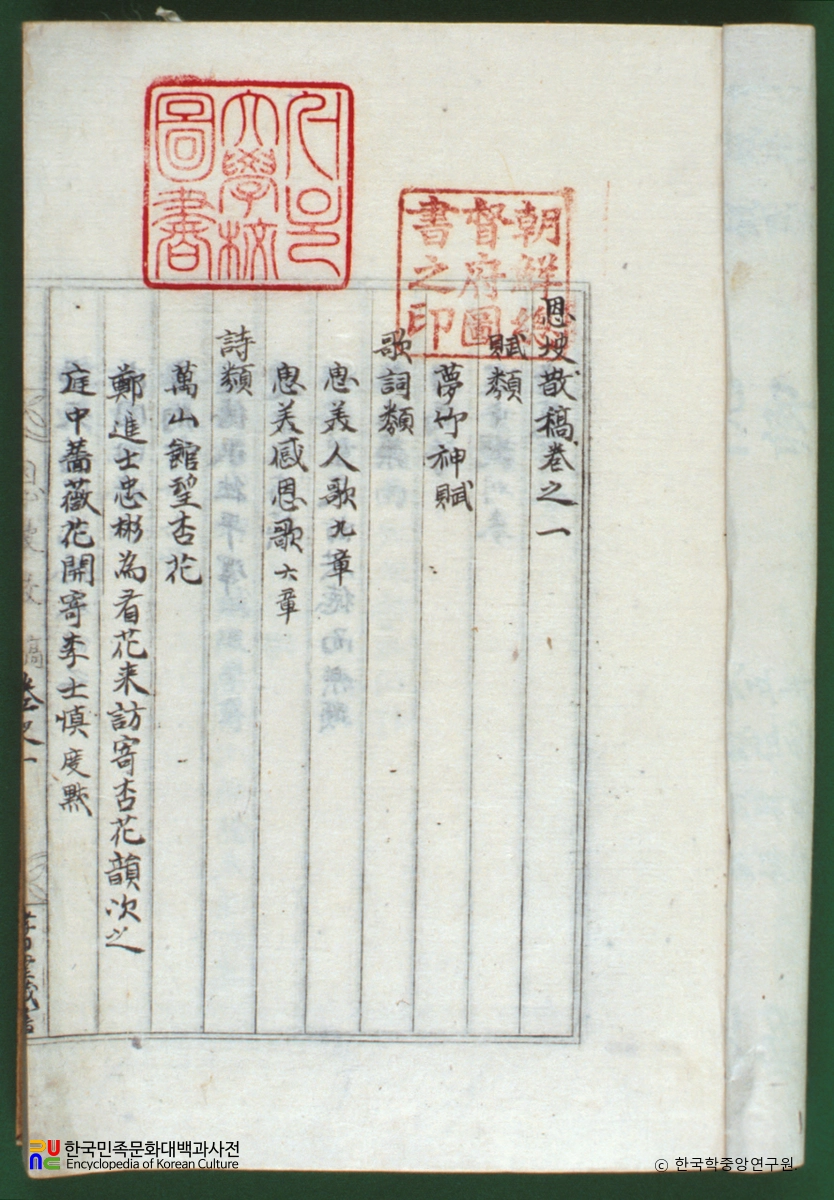 서울
大學校
圖書
朝鮮總
督府圖
書之印
恩坡散稿卷之一
賦類
夢竹神賦
歌詞類
思美人歌九章
思美感恩歌六章
詩類
萬山館望杏花
鄭進士忠彬為看花来訪寄杏花韻次之
庭中薔薇花開寄李士慎度黙
卷之一
한국민족문화대백과사전
Encyclopedia of Korean Culture
ⓒ 한국학중앙연구원